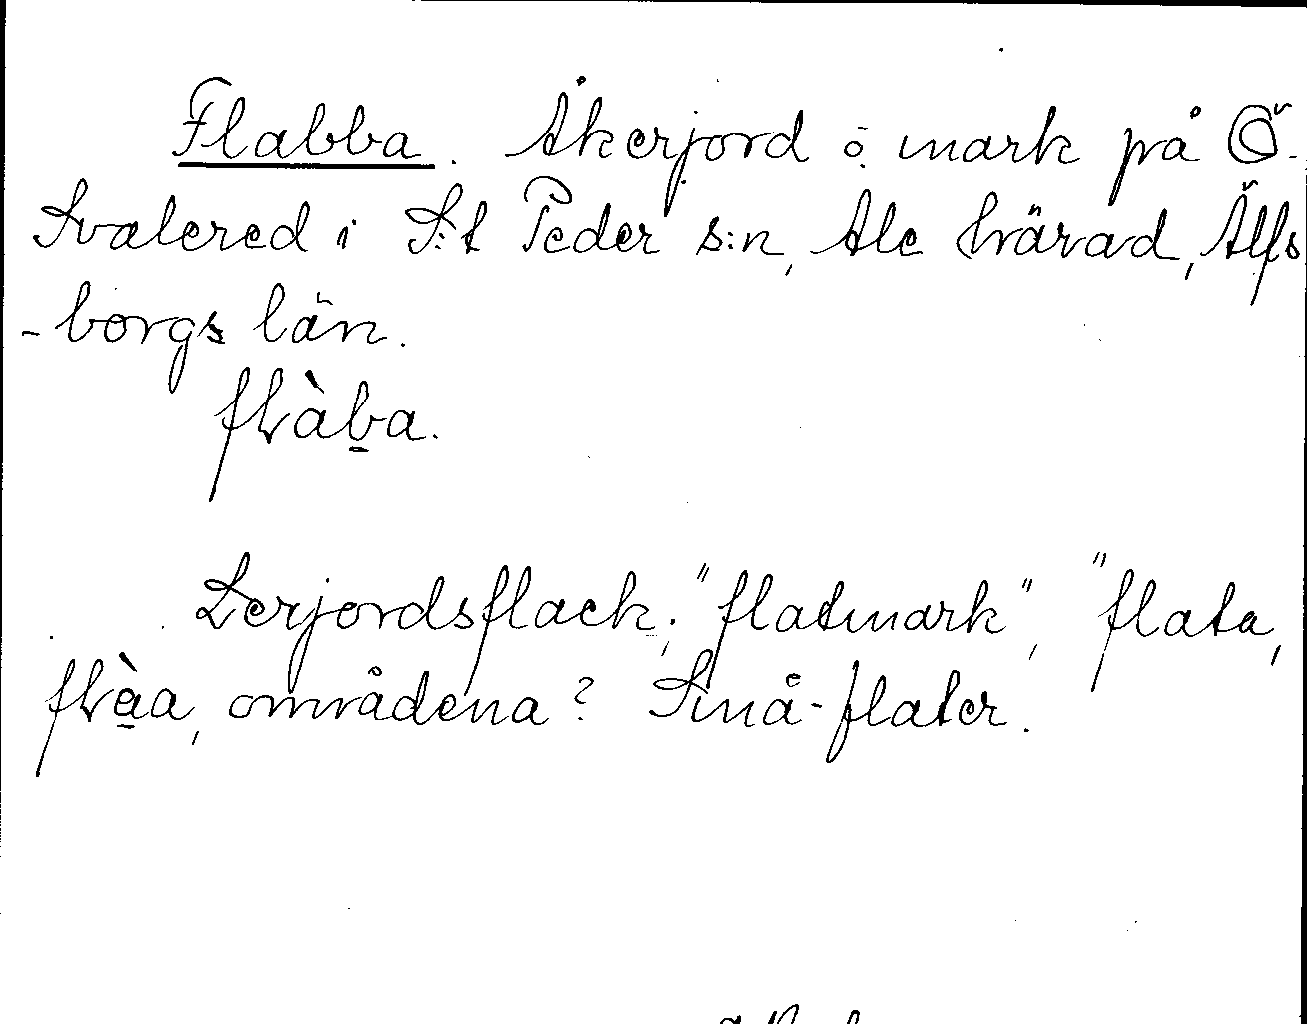 Flabba. Åkerjord o. mark på Ö.
Svalered i S:t Peder s:n, Ale härad, Älfs
-borgs län.
flàba.
Lerjordsflack; "flatmark", "flata,
flàa, områdena? Små-flater.